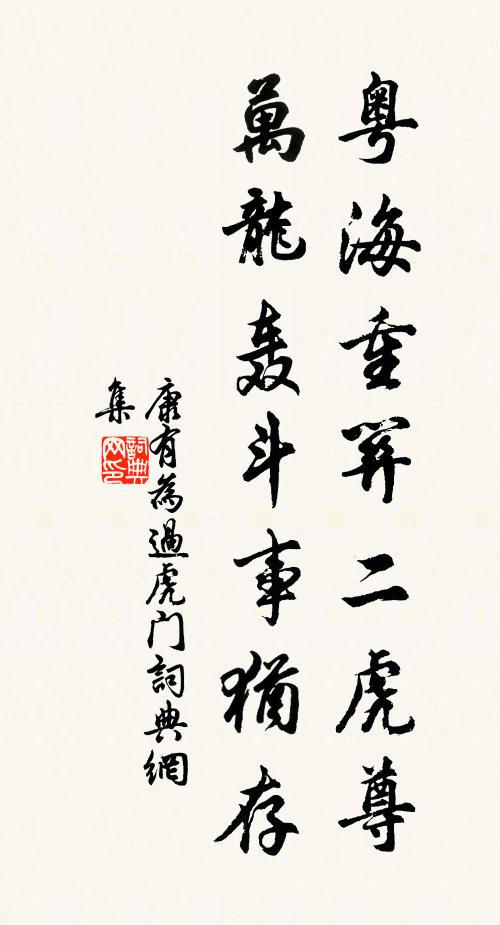 粵海重關二虎尊
萬龍轰斗事猶存
康有為過虎门詞典網
集
詞典网印